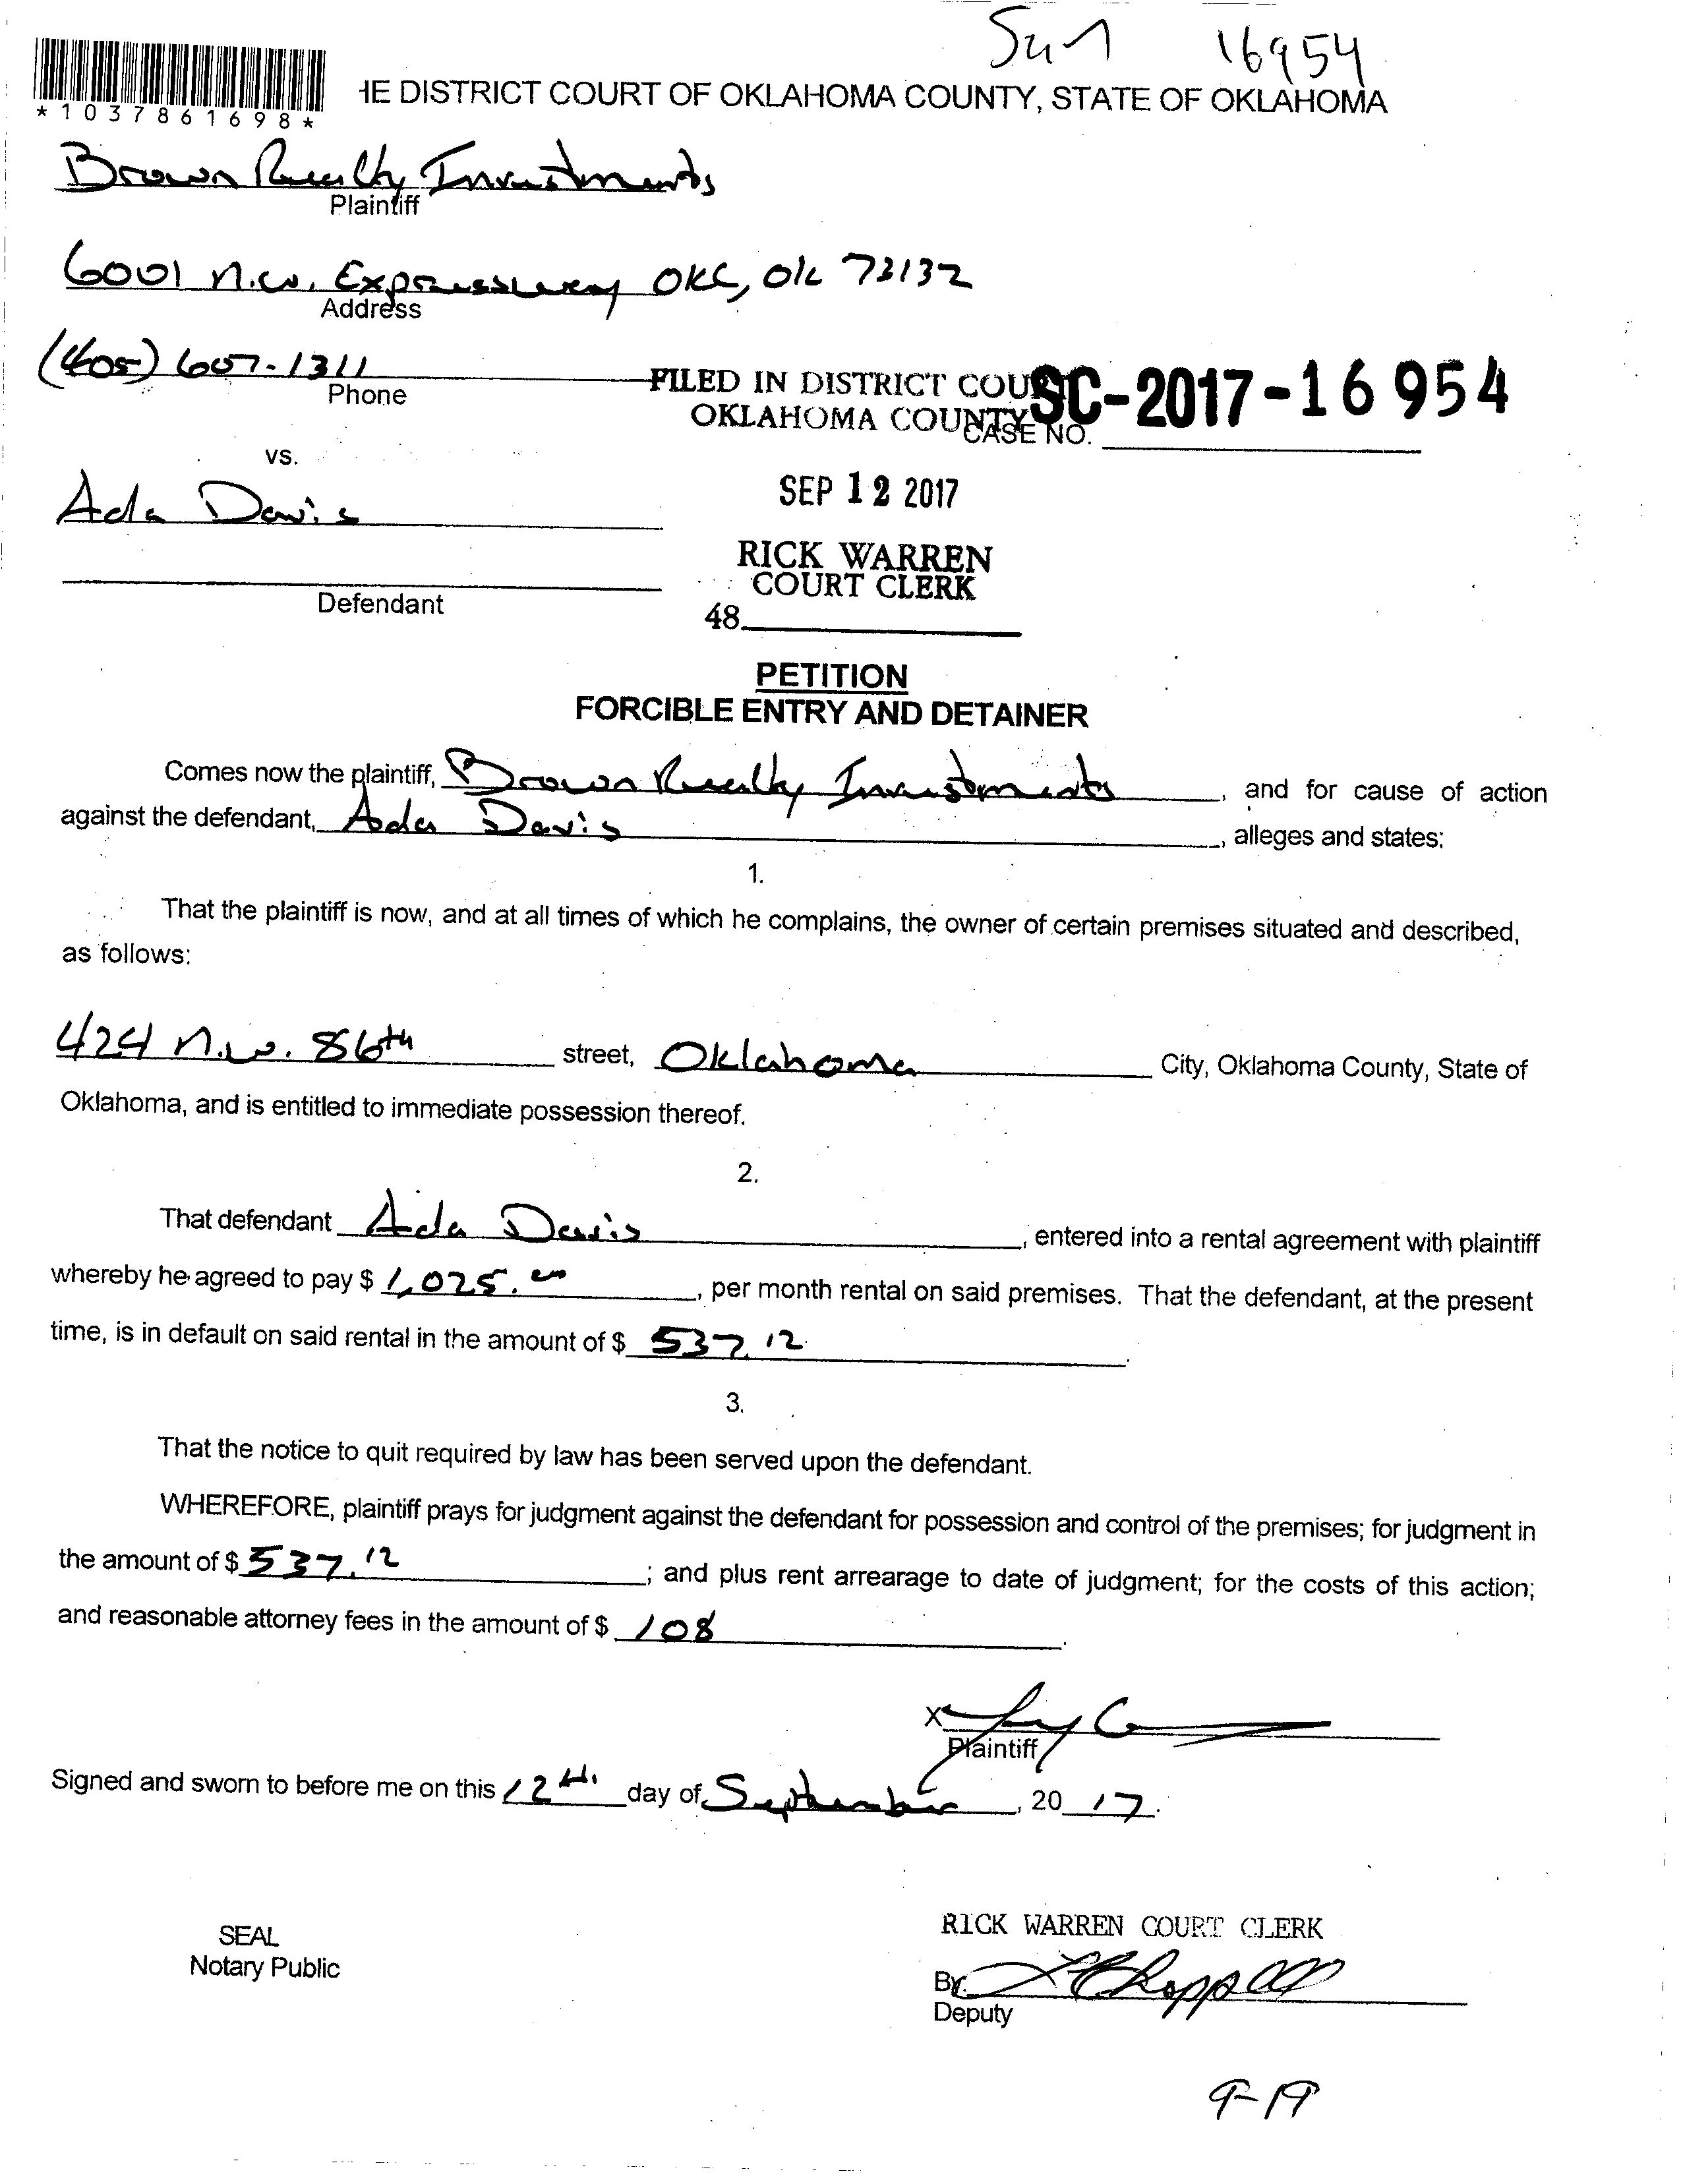 Sun 16954
*1037861698*
HE DISTRICT COURT OF OKLAHOMA COUNTY, STATE OF OKLAHOMA
Brown Realty Investments
Plaintiff
6001 N.W. Expressway OKC, Ok 73132
Address
(405) 607-1311
Phone
FILED IN DISTRICT COU
SC-2017-16954
OKLAHOMA COUNTY
CASE NO.
vs.
SEP 12 2017
Ada Davis
RICK WARREN
COURT CLERK
Defendant
48
PETITION
FORCIBLE ENTRY AND DETAINER
Comes now the plaintiff, Brown Realty Investments, and for cause of action
against the defendant, Ada Davis, alleges and states:
1.
That the plaintiff is now, and at all times of which he complains, the owner of certain premises situated and described,
as follows:
424 N.W. 86th street, Oklahoma City, Oklahoma County, State of
Oklahoma, and is entitled to immediate possession thereof.
2.
That defendant Ada Davis, entered into a rental agreement with plaintiff
whereby he agreed to pay $ 1,025.00, per month rental on said premises. That the defendant, at the present
time, is in default on said rental in the amount of $ 537.12.
3.
That the notice to quit required by law has been served upon the defendant.
WHEREFORE, plaintiff prays for judgment against the defendant for possession and control of the premises; for judgment in
the amount of $ 537.12; and plus rent arrearage to date of judgment; for the costs of this action;
and reasonable attorney fees in the amount of $ 108.
X
Plaintiff
Signed and sworn to before me on this 12th day of September, 20 17.
SEAL
Notary Public
RICK WARREN COURT CLERK
By: Chappell
Deputy
9-19